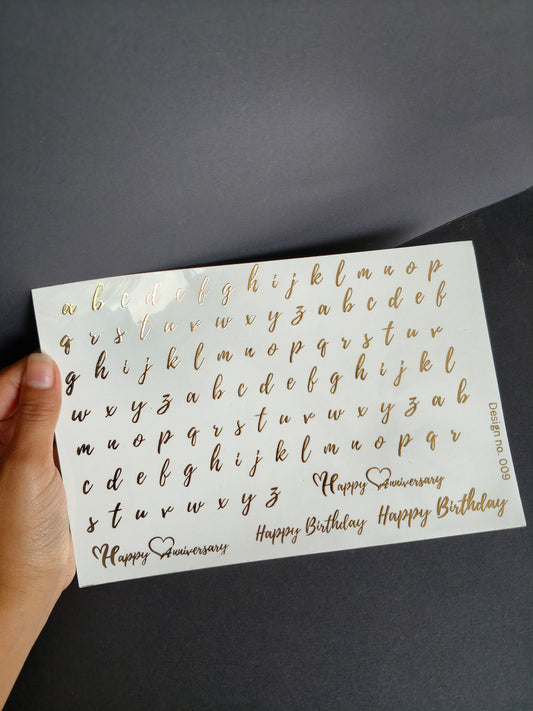 a b c d e f g h i j k l m n o p
q r s t u v w x y z a b c d e f
g h i j k l m n o p q r s t u v
w x y z a b c d e f g h i j k l
m n o p q r s t u v w x y z a b
c d e f g h i j k l m n o p q r
s t u v w x y z Happy Anniversary
Happy Anniversary Happy Birthday Happy Birthday
Design no. 009